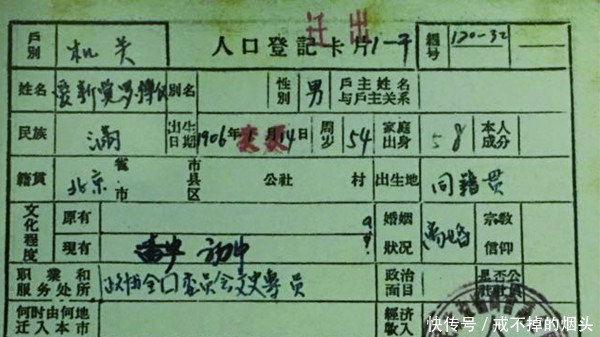 迁出
戶別 机关 人口登記卡片1-干 編号 120-32
姓名 愛新覺罗 別名 性別 男 戶主姓名与戶主关系
民族 滿 出生日期 1906年 月14日 周岁 54 家庭出身 本人成分
籍貫 北京 省市 市县区 公社 村 出生地 同籍貫
文化程度 原有 婚姻狀况 离婚 宗教信仰
現有 初中
职業和服务处所 政协全口委員会文史專員 政治面目 是否公社社員
何时由何地迁入本市 經济收入
快传号／戒不掉的烟头